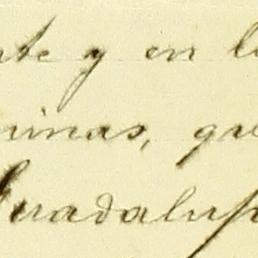 nte y en l
minas, que
Guadalup